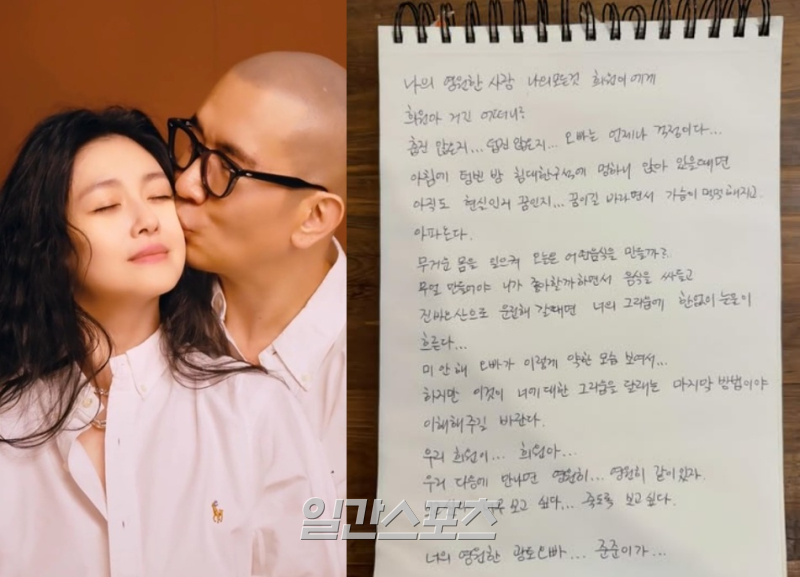 나의 영원한 사랑 나의모든것 희원이에게
희원아 거긴 어떠니?
춥진 않은지... 덥진 않은지... 오빠는 언제나 걱정이다...
아침에 텅빈 방 침대한구석에 멍하니 앉아 있을때면
아직도 현실인지 꿈인지... 꿈이길 바라면서 가슴이 먹먹해지고
아파온다.
무거운 몸을 일으켜 오늘은 어떤음식을 만들까?
무얼 만들어야 니가 좋아할까하면서 음식을 싸들고
진바오산으로 운전해 갈때면 너의 그리움에 한없이 눈물이
흐른다...
미안해 오빠가 이렇게 약한 모습 보여서...
하지만 이것이 너에 대한 그리움을 달래는 마지막 방법이야
이해해주길 바란다.
우리 희원이... 희원아...
우리 다음에 만나면 영원히... 영원히 같이있자.
보고 싶다... 죽도록 보고싶다.
너의 영원한 광토오빠... 준준이가...
일간스포츠